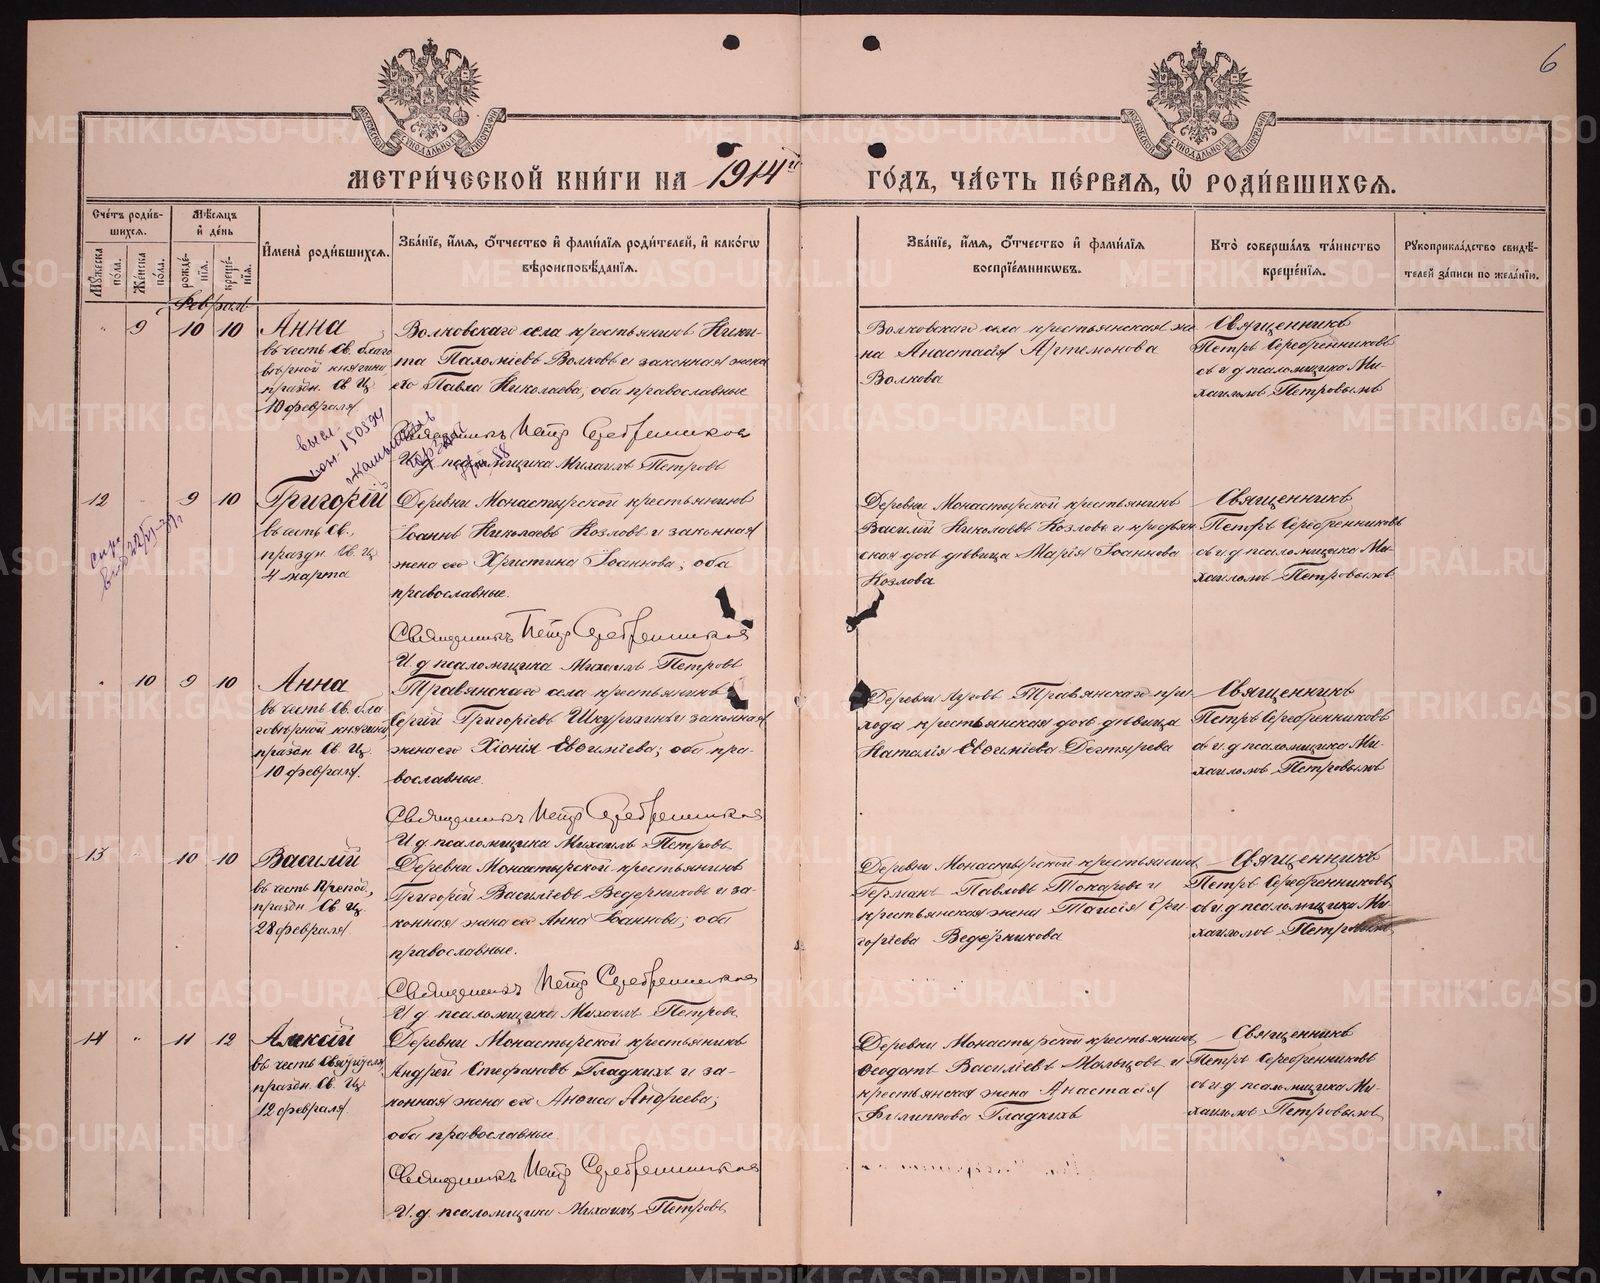 6
МЕТРИЧЕСКОЙ КНИГИ НА 1914й ГОДЪ, ЧАСТЬ ПЕРВАЯ, Ѡ РОДИВШИХСЯ.
Счетъ родив-
шихся.
Мѣсяцъ
и день
Мужеска
пола.
Женска
пола.
рожде-
нія.
креще-
нія.
Имена родившихся.
Званіе, имя, отчество и фамилія родителей, и какогѡ
вѣроисповѣданія.
Званіе, имя, отчество и фамилія
воспріемникѡвъ.
Кто совершалъ таинство
крещенія.
Рукоприкладство свидѣ-
телей записи по желанію.
Февраль
" 9 10 10
Анна
въ честь Св. благо
вѣрной княгини
праздн. Св. Ц.
10 февраля
Волковскаго села крестьянинъ Ники-
та Пахоміевъ Волковъ и законная жена
его Павла Николаева, оба православные
Священникъ Петръ Серебренниковъ
И.д. псаломщика Михаилъ Петровъ
Волковскаго села крестьянская же
на Анастасія Артемонова
Волкова
Священникъ
Петръ Серебренниковъ
съ и. д. псаломщика Ми-
хаиломъ Петровымъ
12 " 9 10
Григорій
въ честь Св.,
праздн. Св. Ц.
4 марта
Деревни Монастырской крестьянинъ
Іоаннъ Николаевъ Козловъ и законная
жена его Христина Іоаннова, оба
православные.
Священникъ Петръ Серебренниковъ
И. д. псаломщика Михаилъ Петровъ
Деревни Монастырской крестьянинъ
Василій Николаевъ Козловъ и крестьян
ская дочь дѣвица Марія Іоаннова
Козлова
Священникъ
Петръ Серебренниковъ
съ и. д. псаломщика Ми-
хаиломъ Петровымъ
" 10 9 10
Анна
въ честь Св. бла
говѣрной княгини,
праздн. Св. Ц.
10 февраля.
Травянскаго села крестьянинъ
Сергій Григоріевъ Шкурихинъ и законная
жена его Хіонія Евѳиміева; оба пра-
вославные.
Священникъ Петръ Серебренниковъ
И. д. псаломщика Михаилъ Петровъ
Травянскаго при-
хода крестьянская дочь дѣвица
Наталія Евѳиміева Дегтярева
Священникъ
Петръ Серебренниковъ
съ и. д. псаломщика Ми-
хаиломъ Петровымъ
13 " 10 10
Василій
въ честь Препод.,
праздн. Св. Ц.
28 февраля
Деревни Монастырской крестьянинъ
Григорій Василіевъ Ведерниковъ и за-
конная жена его Анна Іоаннова; оба
православные.
Священникъ Петръ Серебренниковъ
И. д. псаломщика Михаилъ Петровъ
Деревни Монастырской крестьянинъ
Германъ Павловъ Токаревъ и
крестьянская жена Таисія Гри-
горіева Ведерникова
Священникъ
Петръ Серебренниковъ
съ и. д. псаломщика Ми-
хаиломъ Петровымъ
14 " 11 12
Алексій
въ честь Святителя,
праздн. Св. Ц.
12 февраля
Деревни Монастырской крестьянинъ
Андрей Стефановъ Гладкихъ и за-
конная жена его Анѳиса Андреева;
оба православные
Священникъ Петръ Серебренниковъ
И. д. псаломщика Михаилъ Петровъ
Деревни Монастырской крестьянинъ
Ѳеодотъ Василіевъ Мальцовъ и
крестьянская жена Анастасія
Филиппова Гладкихъ
Священникъ
Петръ Серебренниковъ
съ и. д. псаломщика Ми-
хаиломъ Петровымъ
METRIKI.GASO-URAL.RU